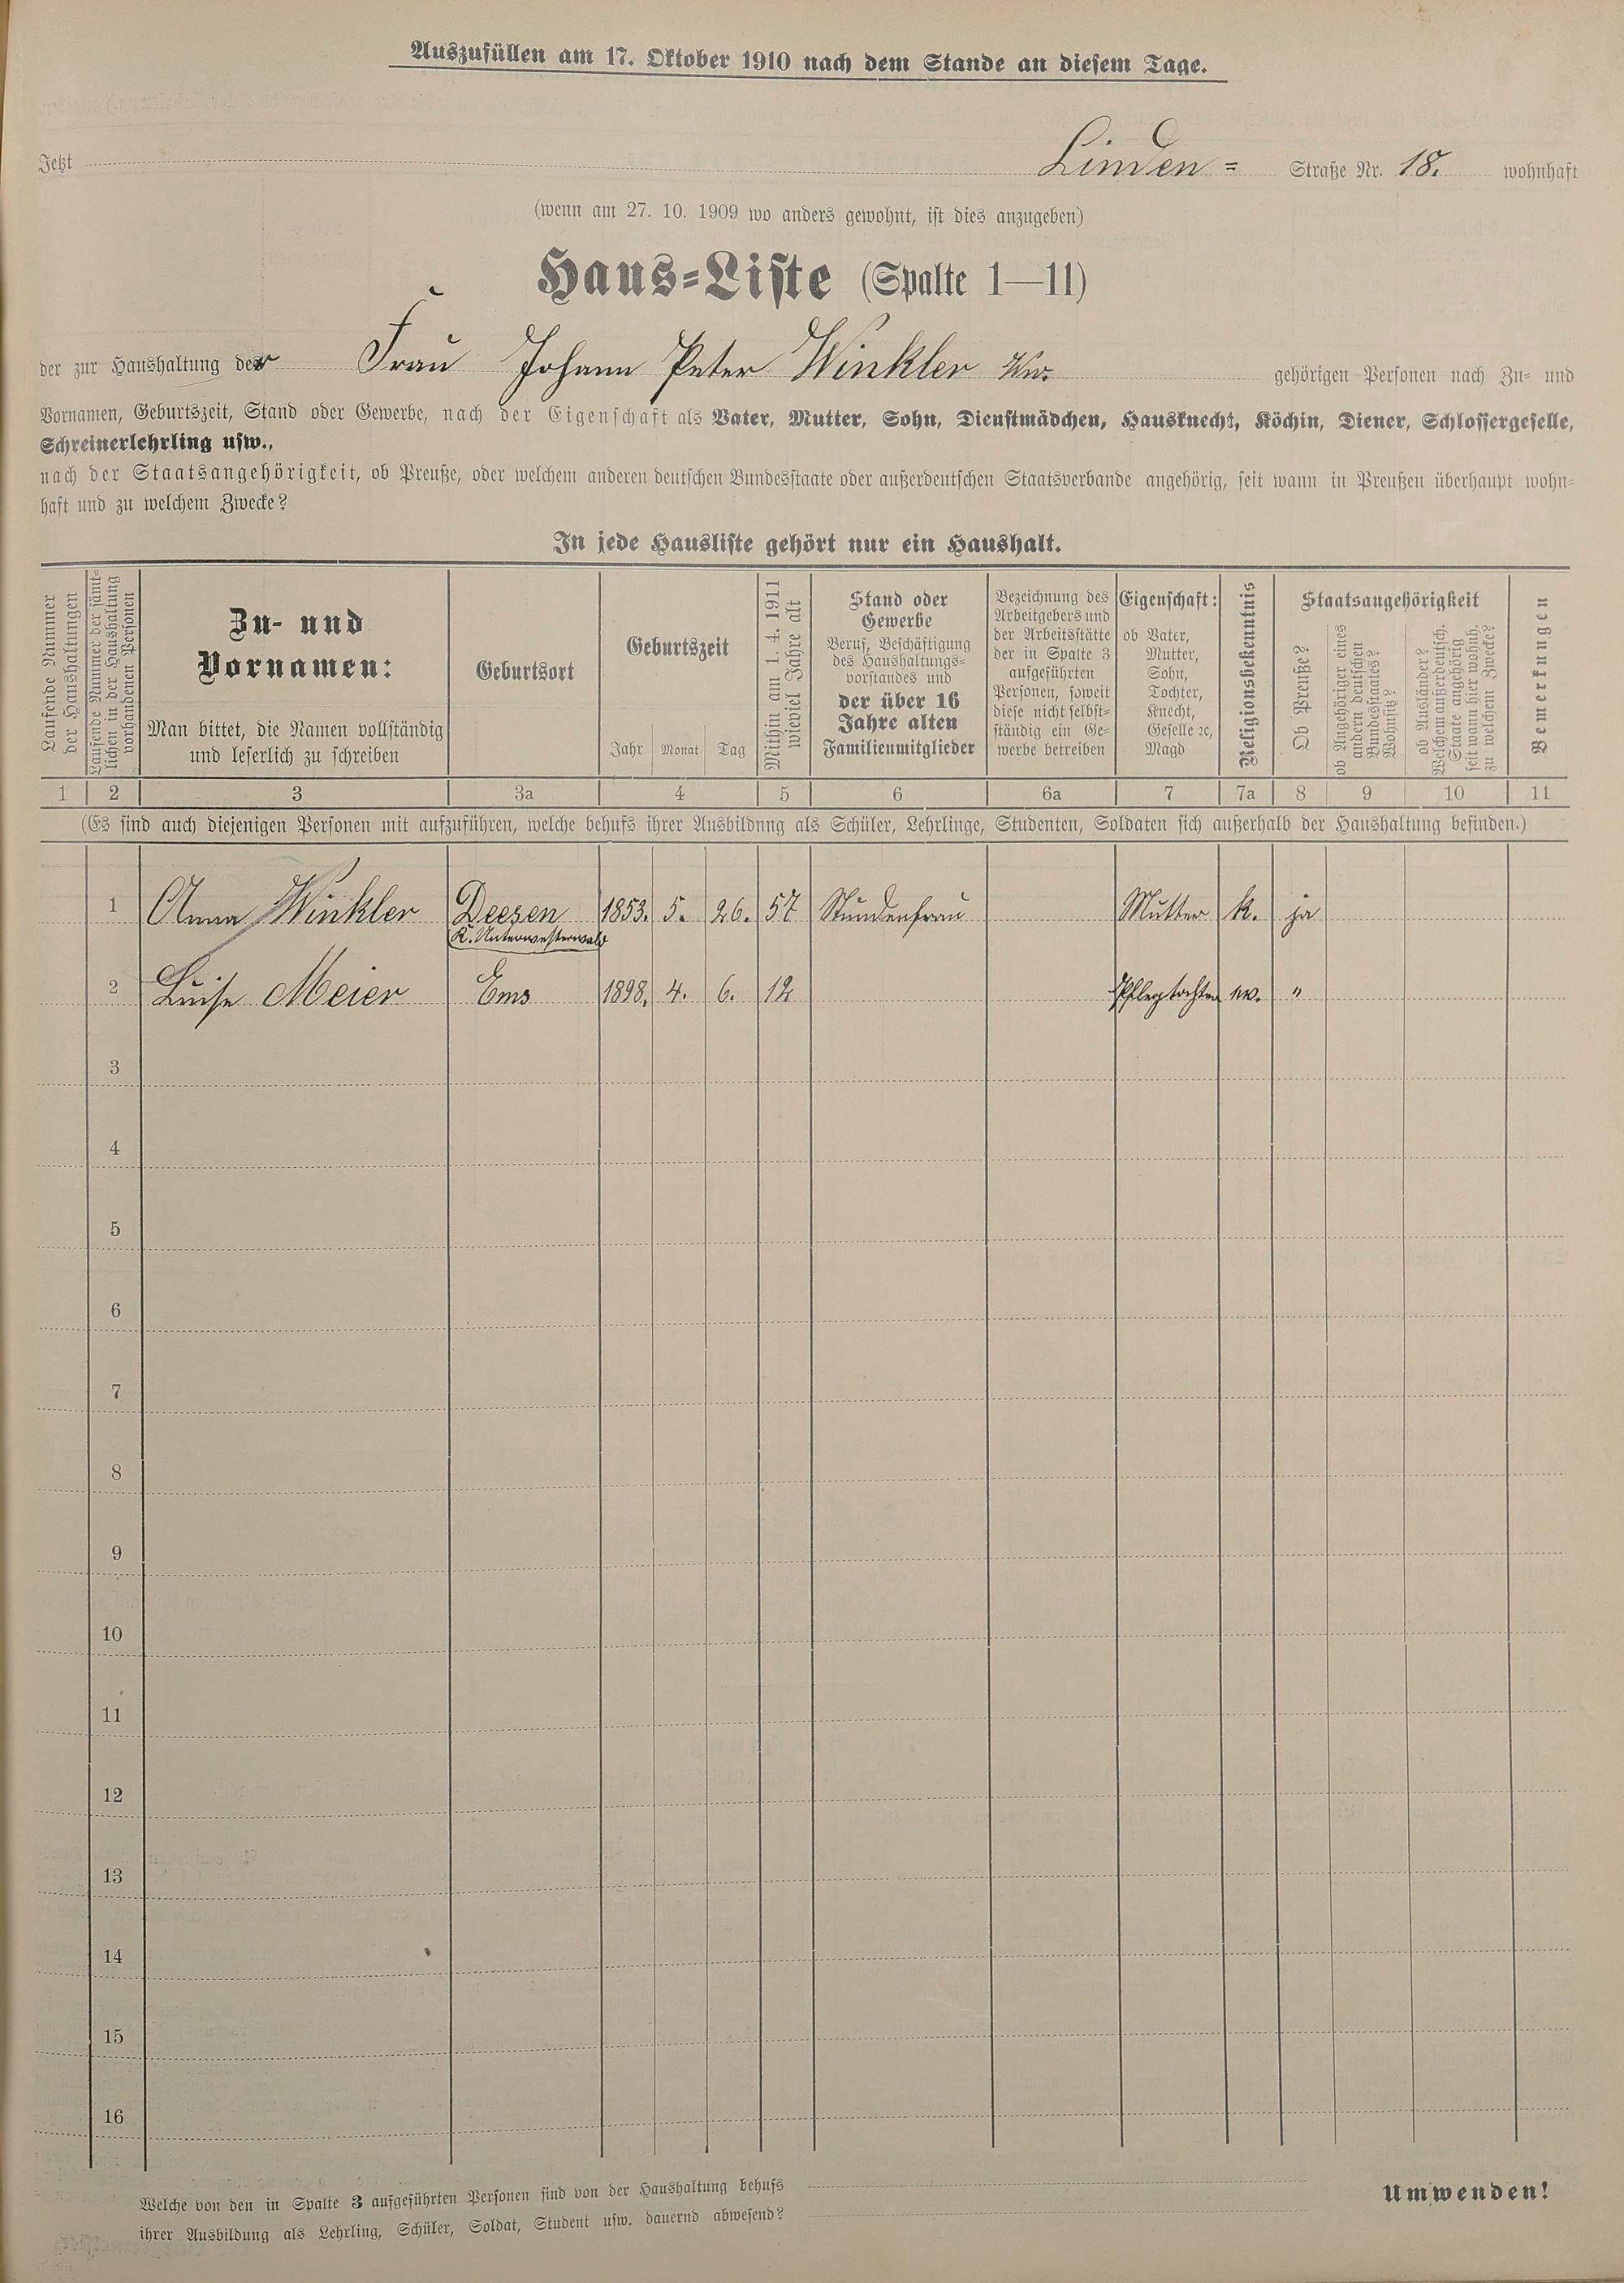 Auszufüllen am 17. Oktober 1910 nach dem Stande an diesem Tage.
Jetzt Linden= Straße Nr. 18. wohnhaft
(wenn am 27. 10. 1909 wo anders gewohnt, ist dies anzugeben)
Haus=Liste (Spalte 1—11)
der zur Haushaltung der Frau Johann Peter Winkler Ww. gehörigen Personen nach Zu= und
Vornamen, Geburtszeit, Stand oder Gewerbe, nach der Eigenschaft als Vater, Mutter, Sohn, Dienstmädchen, Hausknecht, Köchin, Diener, Schlossergeselle,
Schreinerlehrling usw.,
nach der Staatsangehörigkeit, ob Preuße, oder welchem anderen deutschen Bundesstaate oder außerdeutschen Staatsverbande angehörig, seit wann in Preußen überhaupt wohn=
haft und zu welchem Zwecke?
In jede Hausliste gehört nur ein Haushalt.
Laufende Nummer
der Haushaltungen
Laufende Nummer der sämt=
lichen in der Haushaltung
vorhandenen Personen
Zu- und
Vornamen:
Man bittet, die Namen vollständig
und leserlich zu schreiben
Geburtsort
Geburtszeit
Jahr Monat Tag
Mithin am 1. 4. 1911
wieviel Jahre alt
Stand oder
Gewerbe
Beruf, Beschäftigung
des Haushaltungs=
vorstandes und
der über 16
Jahre alten
Familienmitglieder
Bezeichnung des
Arbeitgebers und
der Arbeitsstätte
der in Spalte 3
aufgeführten
Personen, soweit
diese nicht selbst=
ständig ein Ge=
werbe betreiben
Eigenschaft:
ob Vater,
Mutter,
Sohn,
Tochter,
Knecht,
Geselle ꝛc,
Magd
Religionsbekenntnis
Staatsangehörigkeit
Ob Preuße?
ob Angehöriger eines
andern deutschen
Bundesstaates?
Wohnsitz?
ob Ausländer?
Welchem außerdeutsch.
Staate angehörig
seit wann hier wohnh.
zu welchem Zwecke?
Bemerkungen
1 2 3 3a 4 5 6 6a 7 7a 8 9 10 11
(Es sind auch diejenigen Personen mit aufzuführen, welche behufs ihrer Ausbildung als Schüler, Lehrlinge, Studenten, Soldaten sich außerhalb der Haushaltung befinden.)
1 Anna Winkler Deesen 1853. 5. 26. 57 Stundenfrau Mutter k. ja
K. Unterwesterwald
2 Luise Meier Ems 1898. 4. 6. 12 Pflegtochter "
3
4
5
6
7
8
9
10
11
12
13
14
15
16
Welche von den in Spalte 3 aufgeführten Personen sind von der Haushaltung behufs
ihrer Ausbildung als Lehrling, Schüler, Soldat, Student usw. dauernd abwesend?
Umwenden!